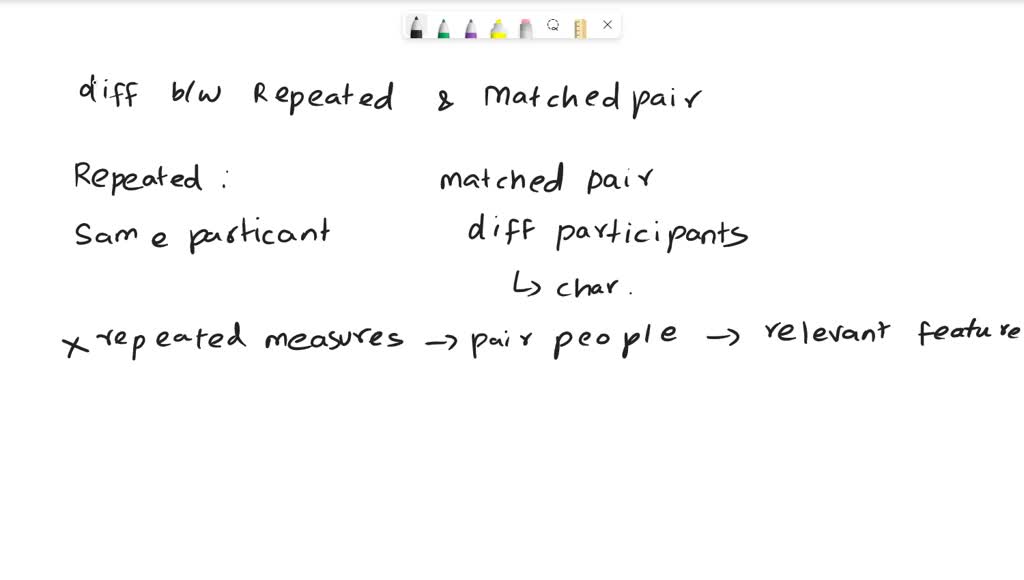 diff b/w Repeated & Matched pair
Repeated : matched pair
Same particant diff participants
↳ char.
x repeated measures → pair people → relevant feature